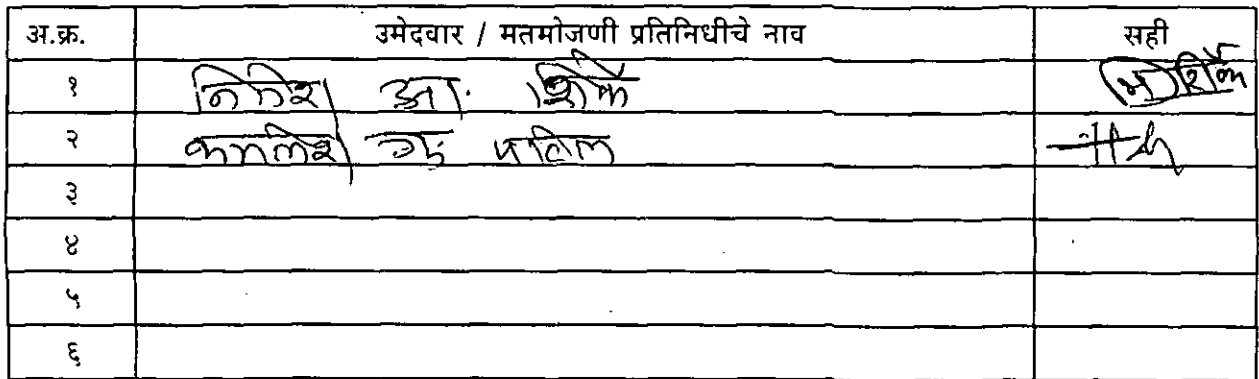 अ.क्र. उमेदवार / मतमोजणी प्रतिनिधीचे नाव सही
१ नितेश आ. शिर्के
२ कमलेश गं. पाटील
३
४
५
६